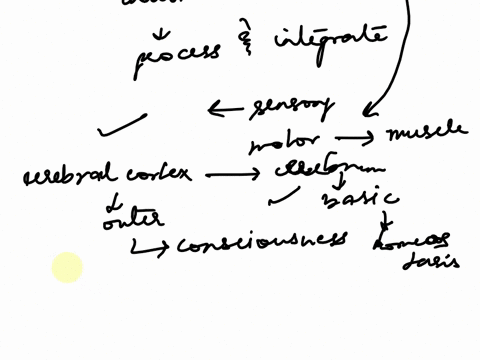 process & integrate
← sensory
motor → muscle
cerebral cortex → cerebrum
outer
basic
→ consciousness
homeos
tasis